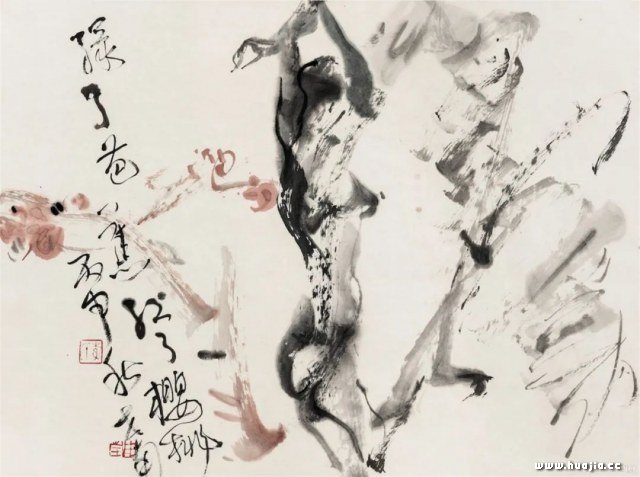 绿了芭蕉
红了櫻桃
丙申秋
www.huajia.cc